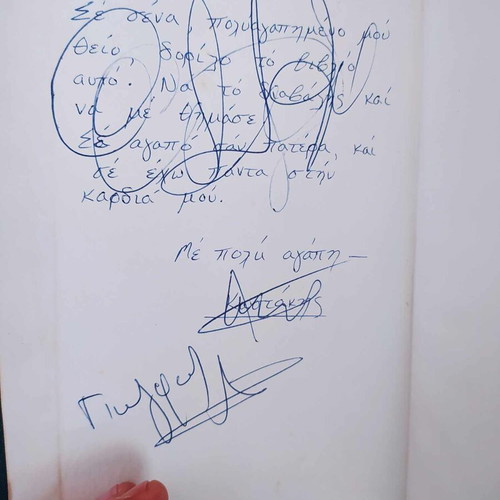 Σέ σένα, πολυαγαπημένο μου
θείο, δορίζο τό βιβλίο
αυτό. Να τό διαβάζης καί
να μέ θημάσε.
Σέ αγαπό σάν πατέρα, καί
σέ έχω πάντα στήν
καρδιά μου.
Μέ πολύ αγάπη —